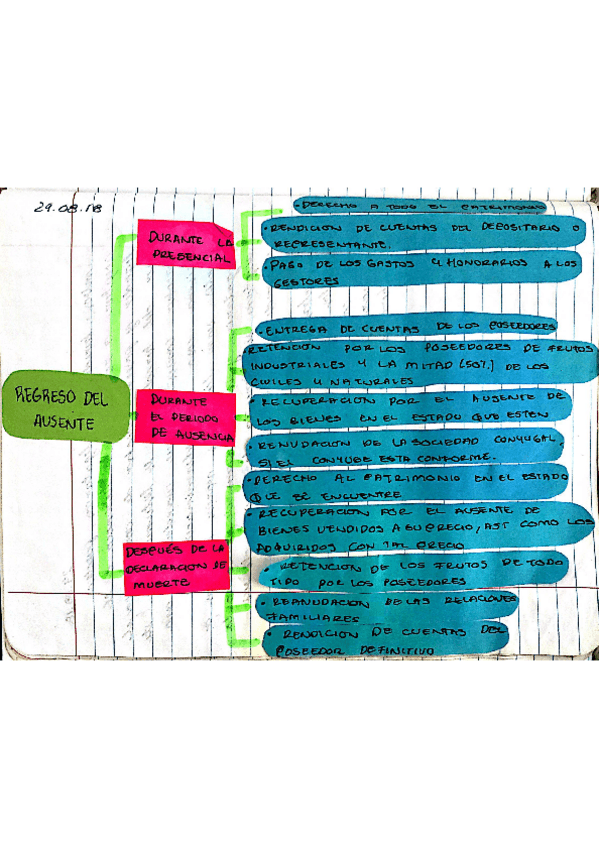 29.08.18
REGRESO DEL
AUSENTE
DURANTE LA
PRESENCIAL
- DERECHO A TODO EL PATRIMONIO
- RENDICION DE CUENTAS DEL DEPOSITARIO O
REPRESENTANTE.
- PAGO DE LOS GASTOS Y HONORARIOS A LOS
GESTORES
DURANTE
EL PERIODO
DE AUSENCIA
- ENTREGA DE CUENTAS DE LOS POSEEDORES
RETENCIÓN POR LOS POSEEDORES DE FRUTOS
INDUSTRIALES Y LA MITAD (50%) DE LOS
CIVILES Y NATURALES
- RECUPERACION POR EL AUSENTE DE
LOS BIENES EN EL ESTADO QUE ESTEN
- RENUDACION DE LA SOCIEDAD CONYUGAL,
SI EL CONYUGE ESTA CONFORME.
DESPUÉS DE LA
DECLARACION DE
MUERTE
- DERECHO AL PATRIMONIO EN EL ESTADO
QUE SE ENCUENTRE
- RECUPERACION POR EL AUSENTE DE
BIENES VENDIDOS A SU PRECIO, ASI COMO LOS
ADQUIRIDOS CON TAL PRECIO
- RETENCION DE LOS FRUTOS DE TODO
TIPO POR LOS POSEEDORES
- REANUDACION DE LAS RELACIONES
FAMILIARES
- RENDICION DE CUENTAS DEL
POSEEDOR DEFINITIVO